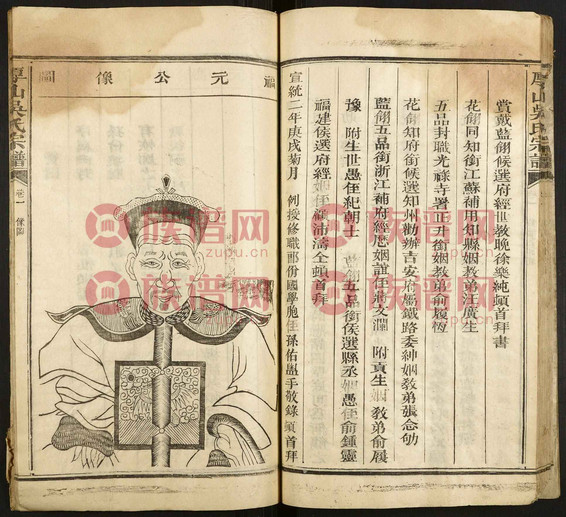 厚山吳氏宗譜
賞戴藍翎候選府經世教晚徐樂純頓首拜書
花翎同知銜江蘇補用知縣姻教弟汪廣生
五品封職光祿寺署正升銜姻教弟俞履恆
花翎知府銜候選知州勸辦吉安府屬鐵路委紳姻教弟張念劬
藍翎五品銜浙江補府經歷姻誼侄蔣文瀾 附貢生姻教弟俞履
豫 附生世愚侄紀朝士 五品銜候選縣丞姻愚侄俞鍾靈
福建侯選府經 愚侄 沛濤仝頓首拜
宣統二年庚戌菊月 例授修職郎份國學胞侄孫佑 手敬錄頓首拜
福元公像圖
厚山吳氏宗譜
卷一 像圖
族谱网
zupu.cn
族谱网
zupu.cn
族谱网
zupu.cn
族谱网
zupu.cn